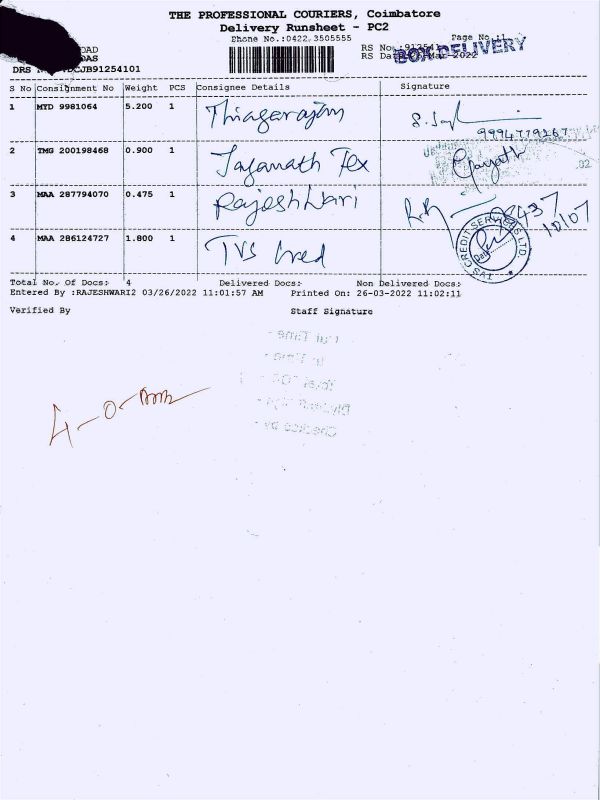 THE PROFESSIONAL COURIERS, Coimbatore
Delivery Runsheet - PC2
Phone No.:0422.3505555
Page No.:1
OAD
RS No.:91254101
BOX DELIVERY
DAS
RS Date:26-Mar-2022
DRS CJB91254101
S No Consignment No Weight PCS Consignee Details Signature
1 MTD 9981064 5.200 1 Thiagarajan
9994779267
2 TMG 200198468 0.900 1 Jaganath Tex Gayath
3 MAA 287794070 0.475 1 Rajeshwari
4 MAA 286124727 1.800 1 TVS Cred
TVS CREDIT SERVICES LTD.
Total No. Of Docs: 4 Delivered Docs: Non Delivered Docs:
Entered By :RAJESHWARI2 03/26/2022 11:01:57 AM Printed On: 26-03-2022 11:02:11
Verified By Staff Signature
4-0-